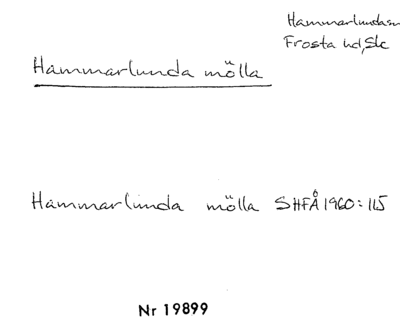 Hammarlundasn
Frosta hd, Skc
Hammarlunda mölla
Hammarlunda mölla SHFÅ 1960:115
Nr 19899